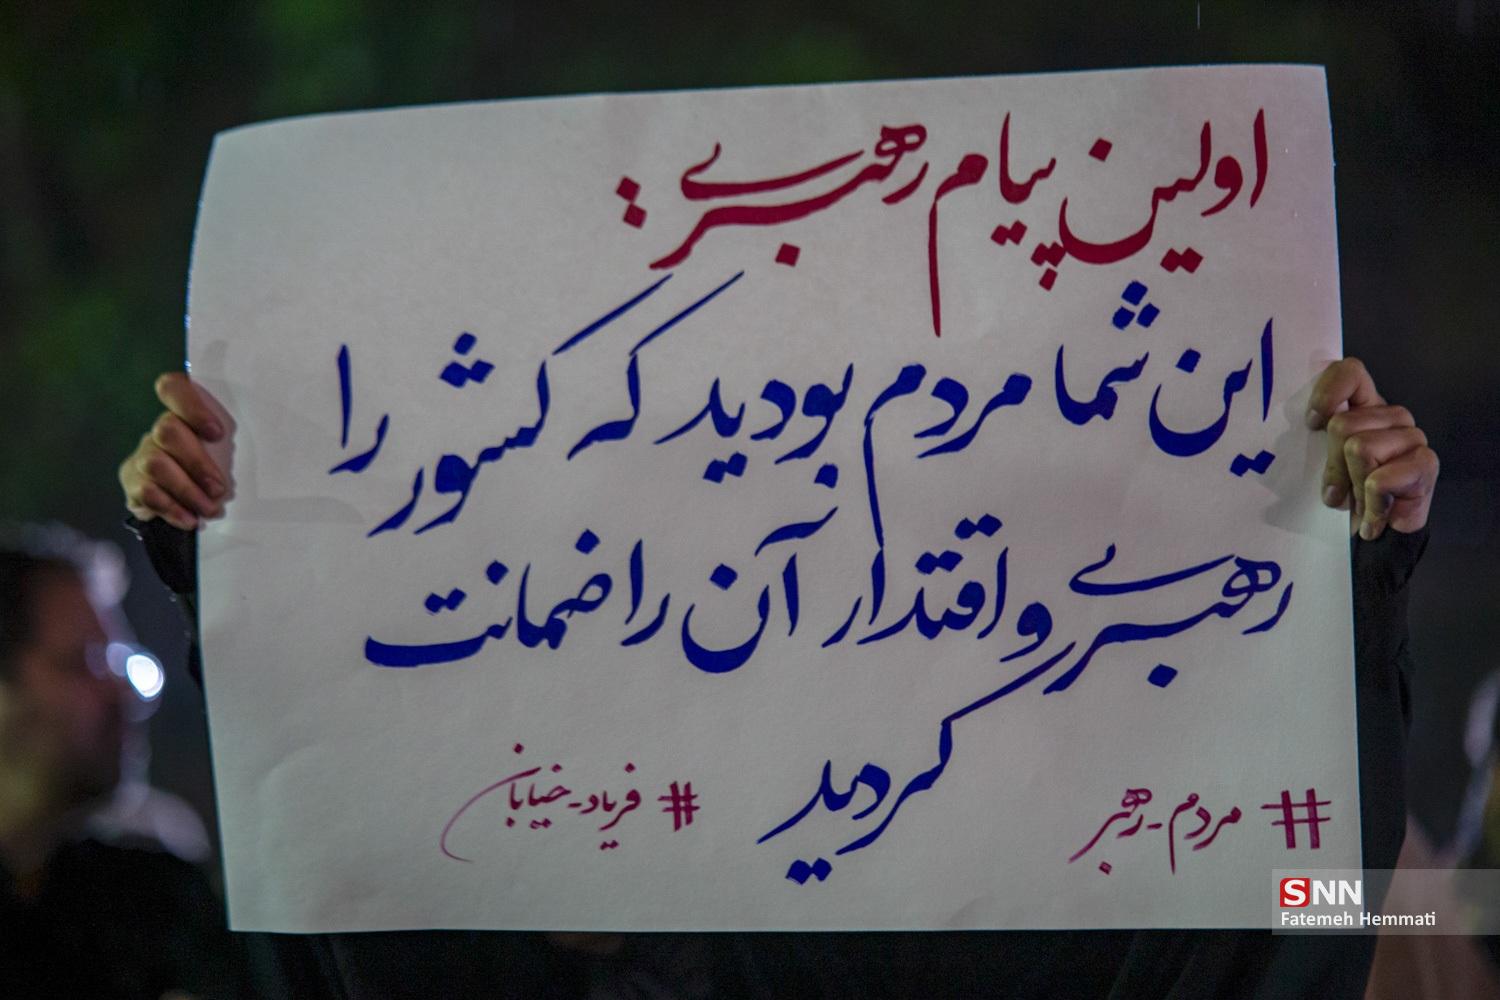 اولین پیام رهبری:
این شما مردم بودید که کشور را
رهبری و اقتدار آن را ضمانت
کردید
#مردم-رهبر
#فریاد-خیابان
SNN
Fatemeh Hemmati